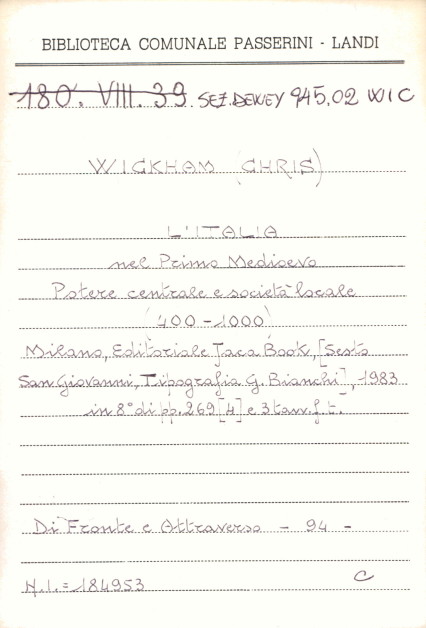 BIBLIOTECA COMUNALE PASSERINI - LANDI
180. VIII. 39. SEZ. DEWEY 945.02 WIC
WICKHAM (CHRIS)
L'ITALIA
nel Primo Medioevo
Potere centrale e società locale
(400-1000)
Milano, Editoriale Jaca Book, [Sesto
San Giovanni, Tipografia G. Bianchi], 1983
in 8° di pp. 269 [4] e 3 tavv. f. t.
Di Fronte e Attraverso - 94 -
N.I. = 184953
C